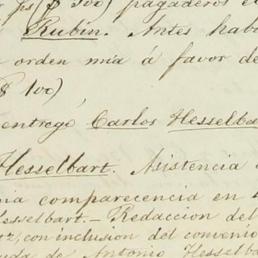 ps ($ 500) pagaderos e
Rubin. Antes hab
orden mia á favor de
$ 100)
entregó Carlos Hesselba
Hesselbart. Asistencia
mia comparecencia en
Hesselbart. – Redaccion del
tz, con inclusion del convenio
uda de Antonio Hesselba